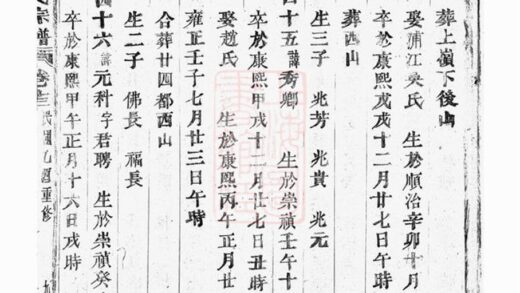 葬上嶺下後山
娶浦江吳氏 生於順治辛卯十月
卒於康熙戊戌十二月廿七日午時
葬西山
生三子 兆芳 兆貴 兆元
四十五諱秀鄉 生於崇禎壬午十
卒於康熙甲戌十二月廿七日丑時
娶趙氏 生於康熙丙午正月廿
雍正壬子七月廿三日午時
合葬廿四都西山
生二子 佛長 福長
十六諱元科字君聘 生於崇禎癸
卒於康熙甲午正月十六日戌時
宗譜 卷之三 民國乙酉重修